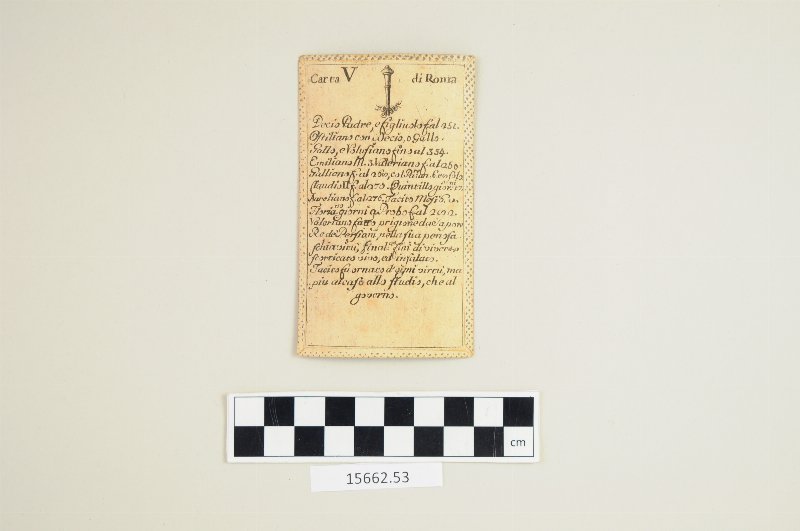 Carta V di Roma
Decio Padre, e figliuolo f. al 251.
Ostiliano con Decio, e Gallo.
Gallo, e Volusiano fino al 354.
Emiliano M. 3. Valeriano f. al 260.
Gallieno f. al
Claudio II f. al 270. Quintillo giorni 17.
Aureliano f. al 275. Tacito Mesi 6.
giorni Probo f. al 282.
Valeriano fatto prigione da
Re de Persiani, nella sua penosa
schiavitù, finalm. finì di vivere
scorticato vivo, ed insalato.
Tacito fu ornato d'ogni virtù, ma
più atto allo studio, che al
governo.
cm
15662.53